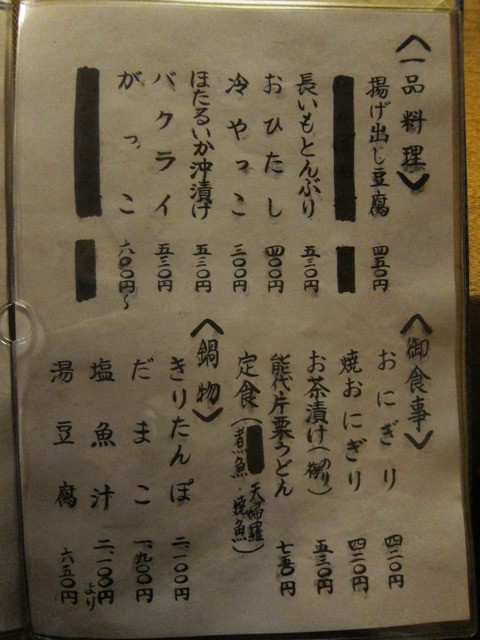 〈一品料理〉
揚げ出し豆腐 四五〇円
長いもとんぶり 五三〇円
おひたし 四〇〇円
冷やっこ 三〇〇円
ほたるいか沖漬け 五三〇円
バクライ 五三〇円
がっこ 六〇〇円〜
〈御食事〉
おにぎり 四二〇円
焼おにぎり 四二〇円
お茶漬け(のり・梅) 五三〇円
能代片栗うどん 七五〇円
定食(天婦羅
煮魚・焼魚)
〈鍋物〉
きりたんぽ 二、一〇〇円
だまこ 一、九〇〇円
塩魚汁 二、一〇〇円より
湯豆腐 六五〇円